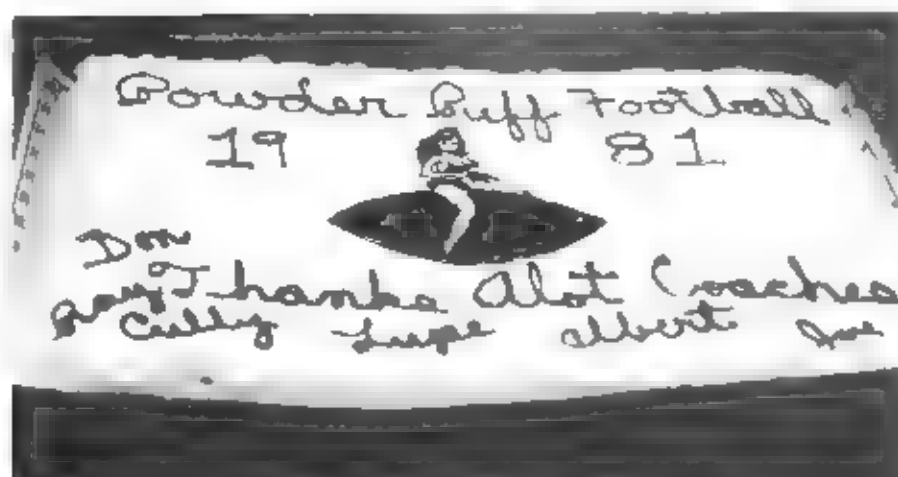 Powder Puff Football
19 81
Don
Ray Thanks Alot Coaches
Cully Lupe Albert Joe